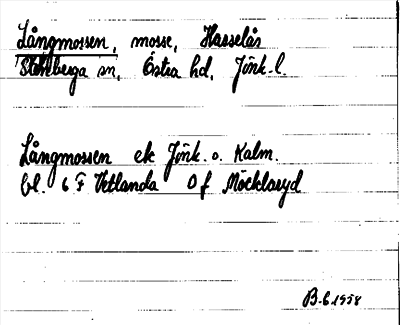 Långmossen, mosse, Hasselås
Stenberga sn, Östra hd, Jönk. l.
Långmossen ek Jönk. o. Kalm.
bl. 6 F Vetlanda 0 f Möcklaryd
B. E 1958